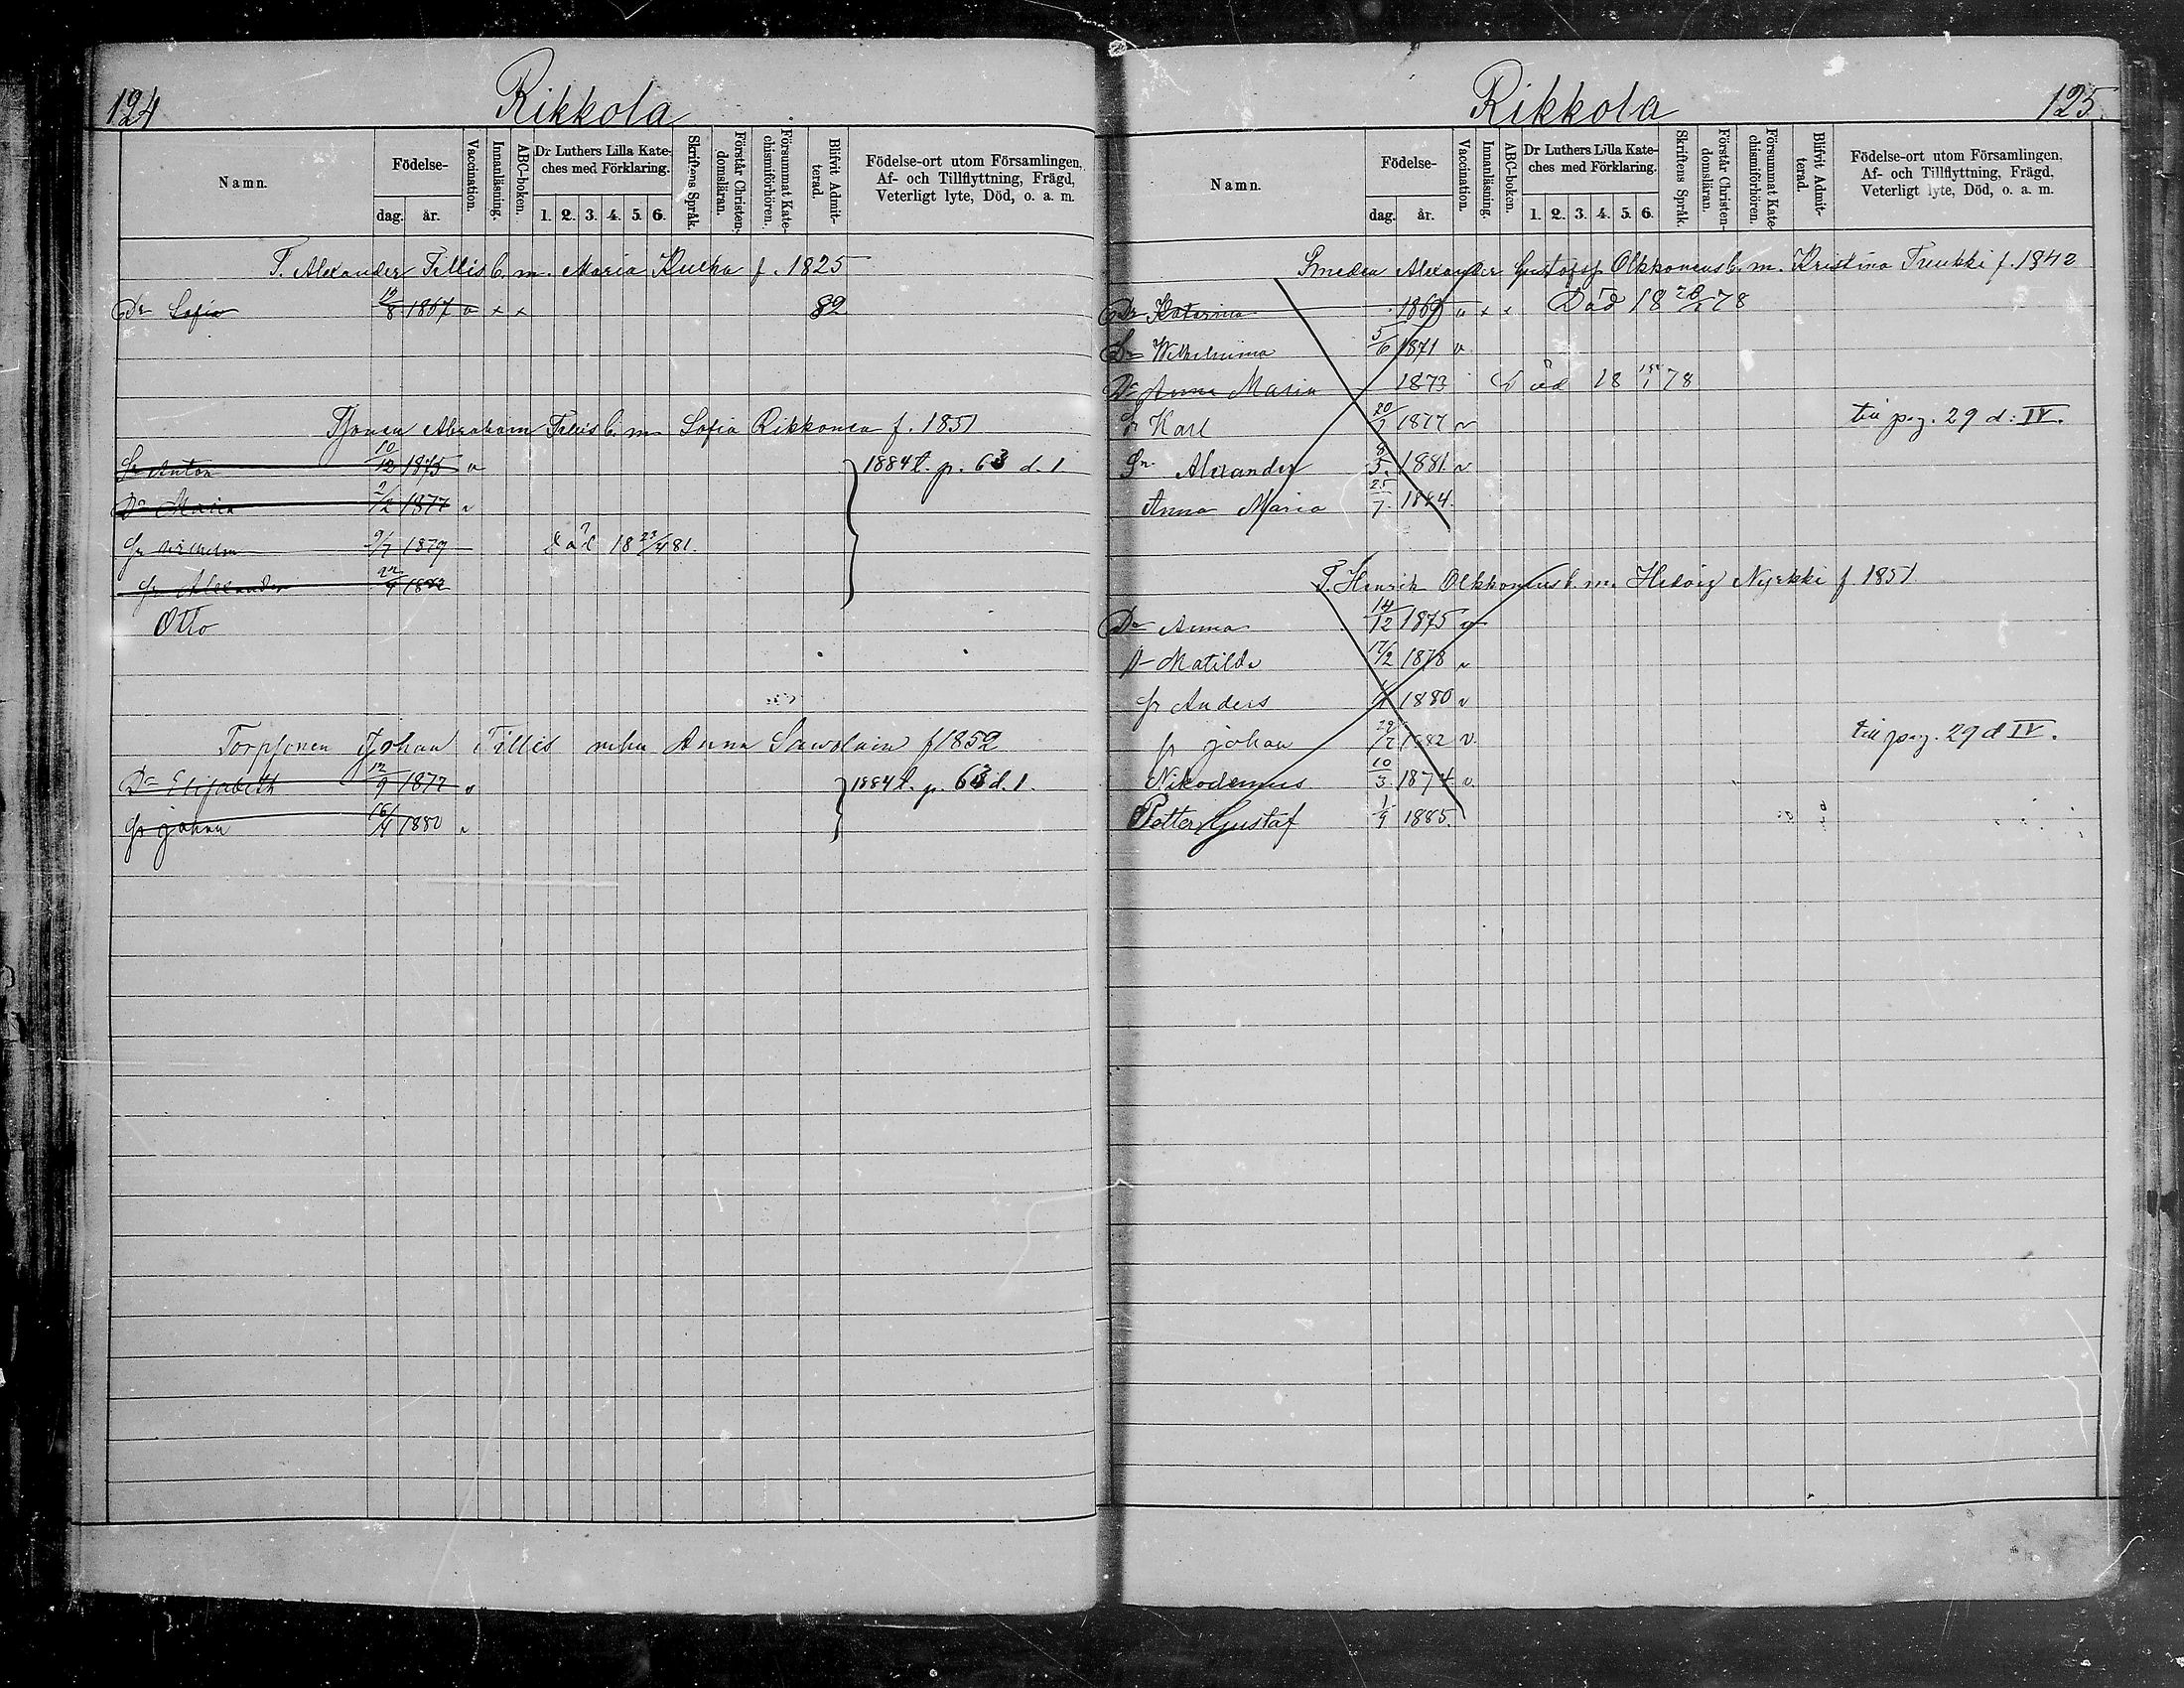 124
Rikkola
Namn.
Födelse-
dag.
år.
Vaccination.
Innanläsning.
ABC-boken.
Dr Luthers Lilla Kate-
ches med Förklaring.
1. 2. 3. 4. 5. 6.
Skriftens Språk.
Förstår Christen-
domsläran.
Försummat Kate-
chismiförhören.
Blifvit Admit-
terad.
Födelse-ort utom Församlingen,
Af- och Tillflyttning, Frägd,
Veterligt lyte, Död, o. a. m.
T. Alexander Tillis b. m. Maria Kulha f. 1825
Dr Sofia 12/8 1867 v x x 82
Abraham Tillis b. m. Sofia Rikkonen f. 1851
Sr Anton 10/12 1875 v 1884 t. p. 63 d. 1
Dr Maria 2/2 1877 v
Sr Wilhelm 9/7 1879 död 18 23/4 81.
Sr Alexander 22/4 1882
Otto
Johan Tillis Anna Sawolain f 1852
Dr Elisabeth 12/9 1877 v 1884 t. p. 63 d. 1.
Sr Johan 16/4 1880 v
Rikkola
125.
Namn.
Födelse-
dag.
år.
Vaccination.
Innanläsning.
ABC-boken.
Dr Luthers Lilla Kate-
ches med Förklaring.
1. 2. 3. 4. 5. 6.
Skriftens Språk.
Förstår Christen-
domsläran.
Försummat Kate-
chismiförhören.
Blifvit Admit-
terad.
Födelse-ort utom Församlingen,
Af- och Tillflyttning, Frägd,
Veterligt lyte, Död, o. a. m.
Smeden Alexander Gustafss. Olkkonens b. m. Kristina Treukki f. 1842
Dr Katarina 1869 v x x Död 18 28/1 78
Dr Wilhelmina 5/6 1871 v
Dr Anna Maria 1873 Död 18 78
Sr Karl 1877 v till pag. 29 d: IV.
Sn Alexander 8/5. 1881. v
Anna Maria 25/7. 1884.
T. Henrik Olkkonens b. m. Hedvig Nyrkki f 1851
Dr Anna 14/12 1875 v
Dr Matilda 17/2 1878 v
Sr Anders 1880 v
Sr Johan 1882 v. till pag. 29 d IV.
Nikodemus 10/3 1874 v.
Petter Gustaf 1/9 1885.